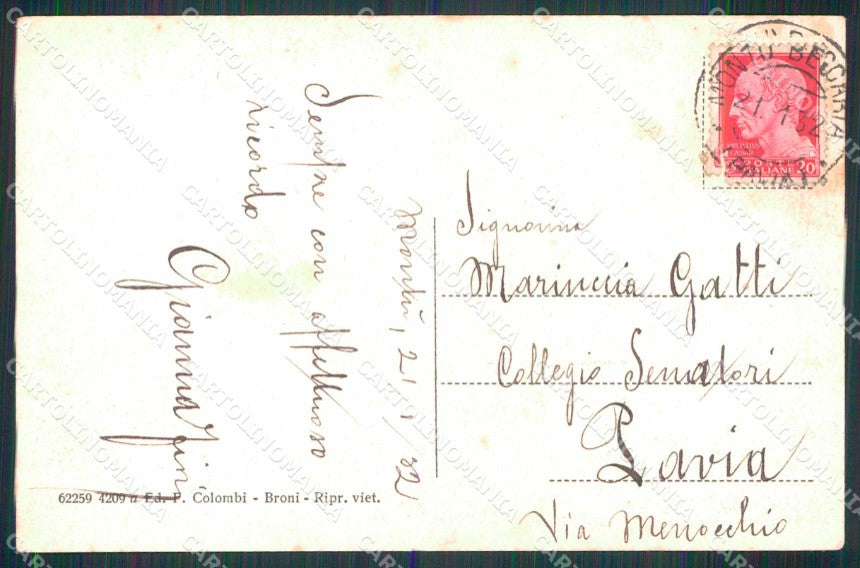 Montù, 21/1/32
Sempre con affettuoso
ricordo
Gianna
MONTÙ BECCARIA
21.1.32
POSTE
ITALIANE
20
Signorina
Marinccia Gatti
Collegio Senatori
Pavia
Via Menocchio
62259 4209 a Ed. P. Colombi - Broni - Ripr. viet.
CARTOLINOMANIA